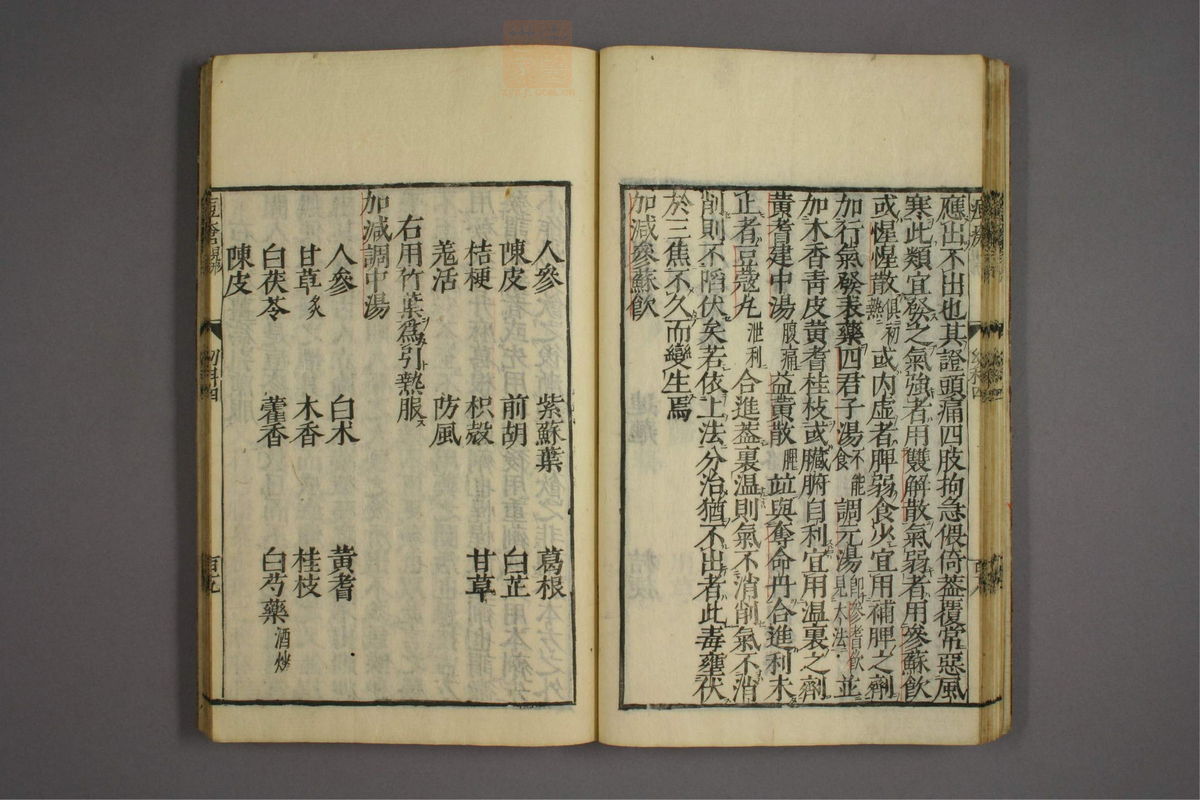 應出不出也其證頭痛四肢拘急偎倚蓋覆常惡風
寒此類宜發之氣強者用雙解散氣弱者用參蘇飲
或惺惺散俱初熱或内虚者脾弱食少宜用補脾之劑
加行氣發表藥四君子湯不能食調元湯即參耆飲見本法並
加木香靑皮黃耆桂枝或臟腑自利宜用温裏之劑
黃耆建中湯腹痛益黃散並與奪命丹合進利未
止者豆蔻丸泄利合進蓋裏温則氣不消削氣不消
削則不陷伏矣若依上法分治猶不出者此毒壅伏
於三焦不久而變生焉
加減參蘇飲
人參 紫蘇葉 葛根
陳皮 前胡 白芷
桔梗 枳殼 甘草
羗活 防風
右用竹葉爲引熱服
加減調中湯
人參 白术 黃耆
甘草炙 木香 桂枝
白茯苓 藿香 白芍藥酒炒
陳皮